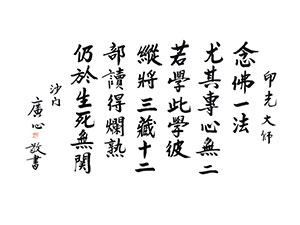 印光大师
念佛一法
尤其專心無二
若學此學彼
縱將三藏十二
部讀得爛熟
仍於生死無関
沙门
廣心敬書